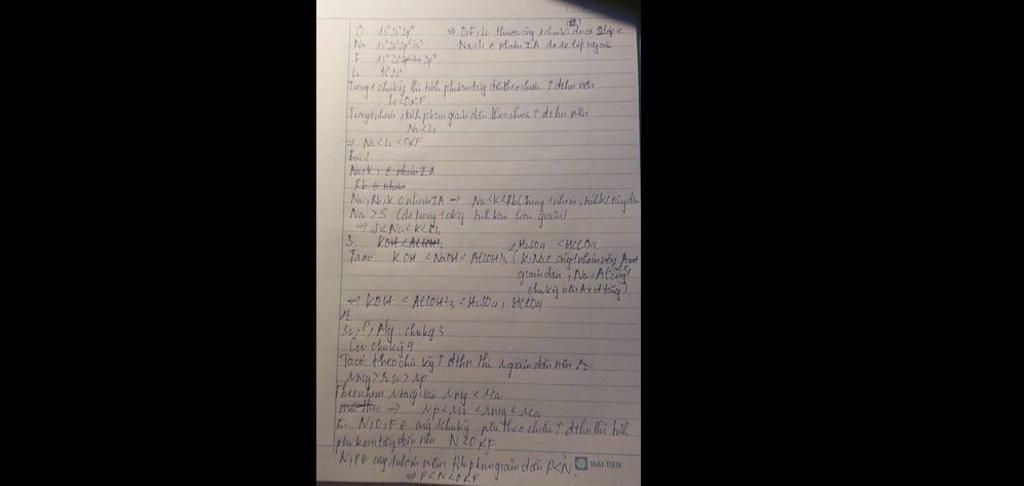 O 1s²2s²2p⁴ => O,F,Li thuộc cùng 1 chu kì do có 2 lớp e
Na 1s²2s²2p⁶3s¹ Na, Li ∈ nhóm IA do 1e lớp ngoài
F 1s²2s² 2p⁵
Li 1s²2s¹
Trong 1 chu kỳ thì tính phi kim tăng dần theo chiều ↑ đthn nên
Li<O<F
Trong 1 nhóm, tính phi kim giảm dần theo chiều ↑ đthn nên
Na<Li
=> Na<Li<O<F
Bài 2
Na, K, ∈ nhóm IA
Rb ∈ nhóm
Na, Rb, K ∈ nhóm IA -> Na<K<Rb (trong 1 nhóm, tính kl tăng dần
Na > S (do trong 1 chu kỳ tính kim loại giảm)
=> S<Na<K<Rb
3. KOH < Al(OH)₃ , H₂SO₄ < HClO₄
Ta có: KOH < NaOH < Al(OH)₃ (K, Na ∈ cùng 1 nhóm nên
giảm dần, Na, Al cùng 1
chu kỳ nên Axit tăng)
=> KOH < Al(OH)₃ < H₂SO₄, HClO₄
4.
Si, P, Mg: chu kỳ 3
Ca chu kỳ 4
Ta có: theo chu kỳ ↑ đthn thì r giảm dần nên
rMg > rSi > rP
Theo nhóm r tăng dần rMg < rCa
=> rP < rSi < rMg < rCa
5. N, O, F ∈ cùng 1 chu kỳ nên theo chiều ↑ đthn thì tính
phi kim tăng dần nên N<O<F
N, P ∈ cùng 1 nhóm nên tính phi kim giảm dần P<N
=> P<N<O<F
HẢI TIẾN